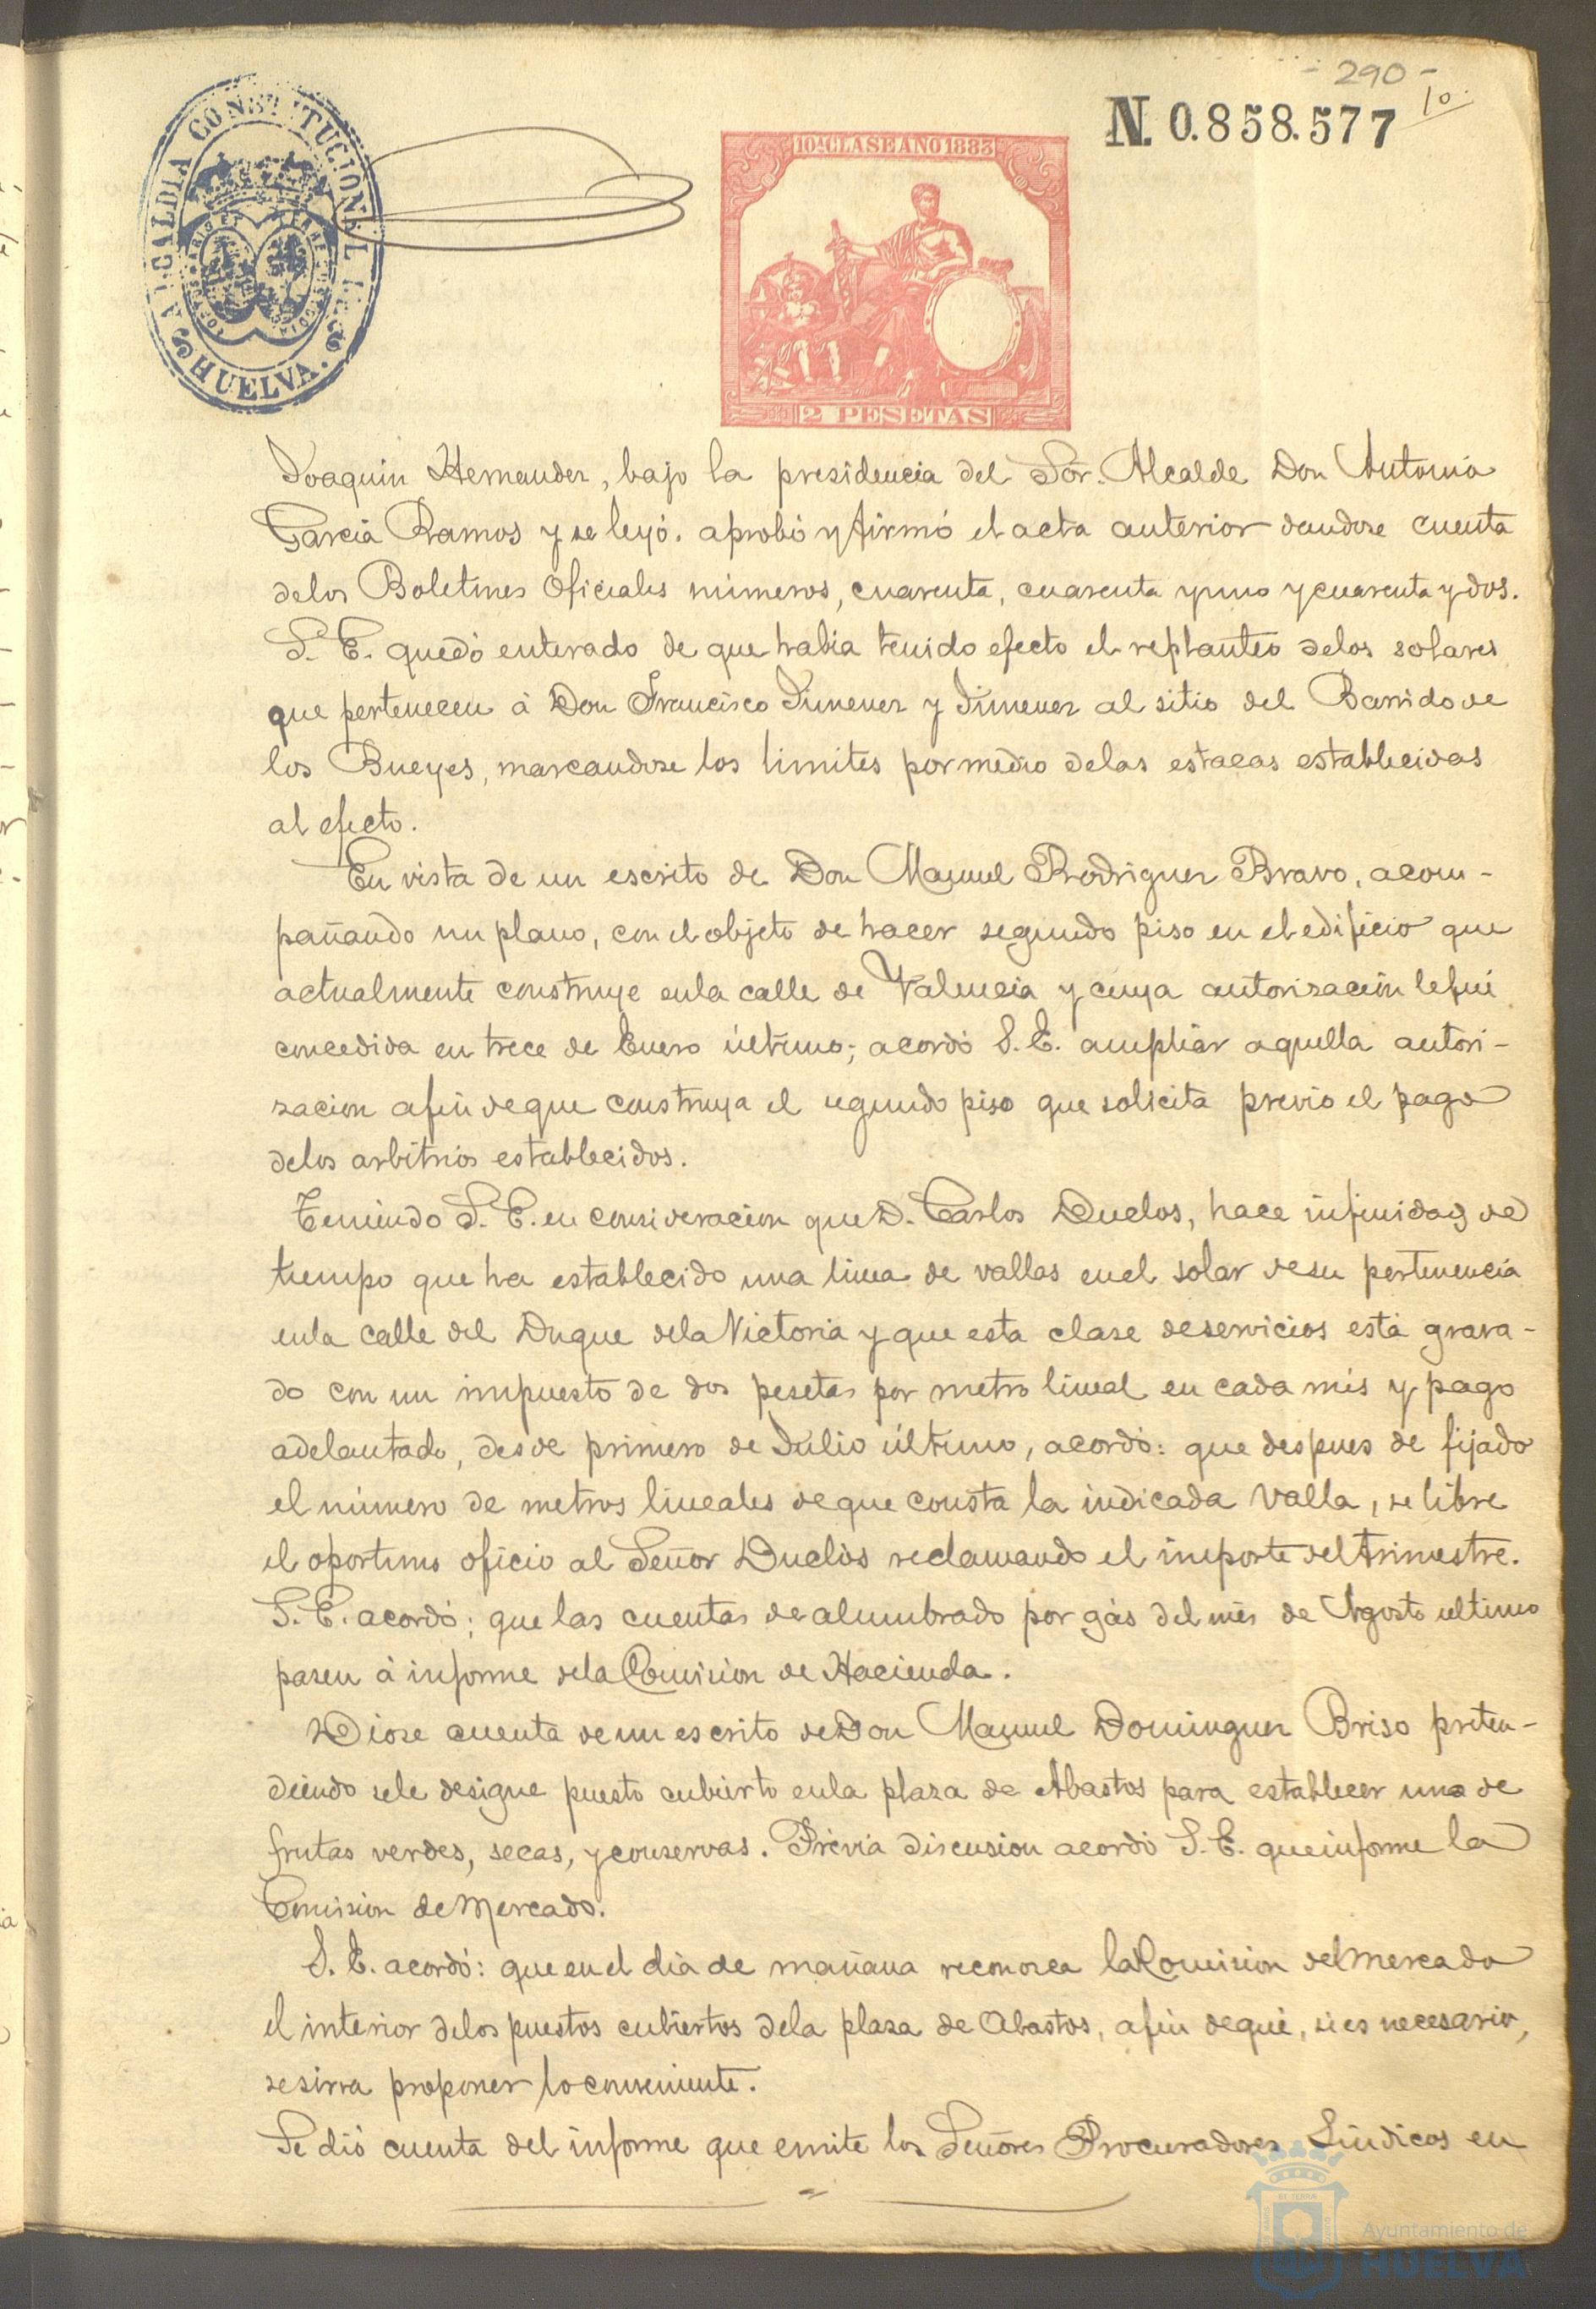 - 290 -
10
N. 0.858.577
ALCALDIA CONSTITUCIONAL DE
HUELVA.
10ª CLASE AÑO 1883
2 PESETAS
Joaquin Hernandez, bajo la presidencia del Sor. Alcalde Don Antonio
Garcia Ramos y se leyó. aprobó y firmó el acta anterior dandose cuenta
delos Boletines Oficiales números, cuarenta, cuarenta y uno y cuarenta y dos.
S. E. quedó enterado de que habia tenido efecto el replanteo delos solares
que pertenecen á Don Francisco Jimenez y Jimenez al sitio del Barrido de
los Bueyes, marcandose los limites por medio delas estacas establecidas
al efecto.
En vista de un escrito de Don Manuel Rodriguez Bravo, acom-
pañando un plano, con el objeto de hacer segundo piso en el edificio que
actualmente construye enla calle de Valencia y cuya autorización le fué
concedida en trece de Enero último; acordó S. E. ampliar aquella autori-
zacion afin deque construya el segundo piso que solicita previo el pago
delos arbitrios establecidos.
Teniendo S. E. en consideracion que D. Carlos Duclos, hace infinidad de
tiempo que ha establecido una linea de vallas enel solar desu pertenencia
enla calle del Duque dela Victoria y que esta clase deservicios está grava-
do con un impuesto de dos pesetas por metro lineal en cada mes y pago
adelantado, desde primero de Julio último, acordó: que despues de fijado
el número de metros lineales deque consta la indicada valla, se libre
el oportuno oficio al Señor Duclós reclamando el importe del trimestre.
S. E. acordó; que las cuentas de alumbrado por gás del més de Agosto ultimo
pasen á informe dela Comision de Hacienda.
Diose cuenta de un escrito de Don Manuel Dominguez Briso preten-
diendo sele designe puesto cubierto enla plaza de Abastos para establecer uno de
frutas verdes, secas, y conservas. Prévia discusion acordó S. E. que informe la
Comision de Mercado.
S. E. acordó: que en el dia de mañana reconozca la Comision del Mercado
el interior delos puestos cubiertos dela plaza de Abastos, afin deque, si es necesario,
se sirva proponer lo conveniente.
Se dió cuenta del informe que emite los Señores Procuradores Síndicos en
Ayuntamiento de
HUELVA